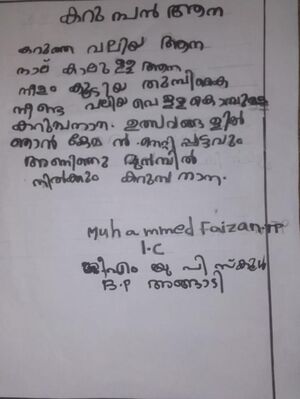 കറുമ്പൻ ആന
കറുത്ത വലിയ ആന
നാല് കാലുള്ള ആന
നീളം കൂടിയ തുമ്പികൈ
നീണ്ട വലിയ വെള്ളകൊമ്പുള്ള
കറുമ്പനാന. ഉത്സവങ്ങളിൽ
ഞാൻ കേമൻ. നെറ്റിപ്പട്ടവും
അണിഞ്ഞു മുൻമ്പിൽ
നിൽക്കും കറുമ്പനാന.
Muhammed Faizan.TP
1.C
ജിഎം യു പി സ്കൂൾ
B.P അങ്ങാടി